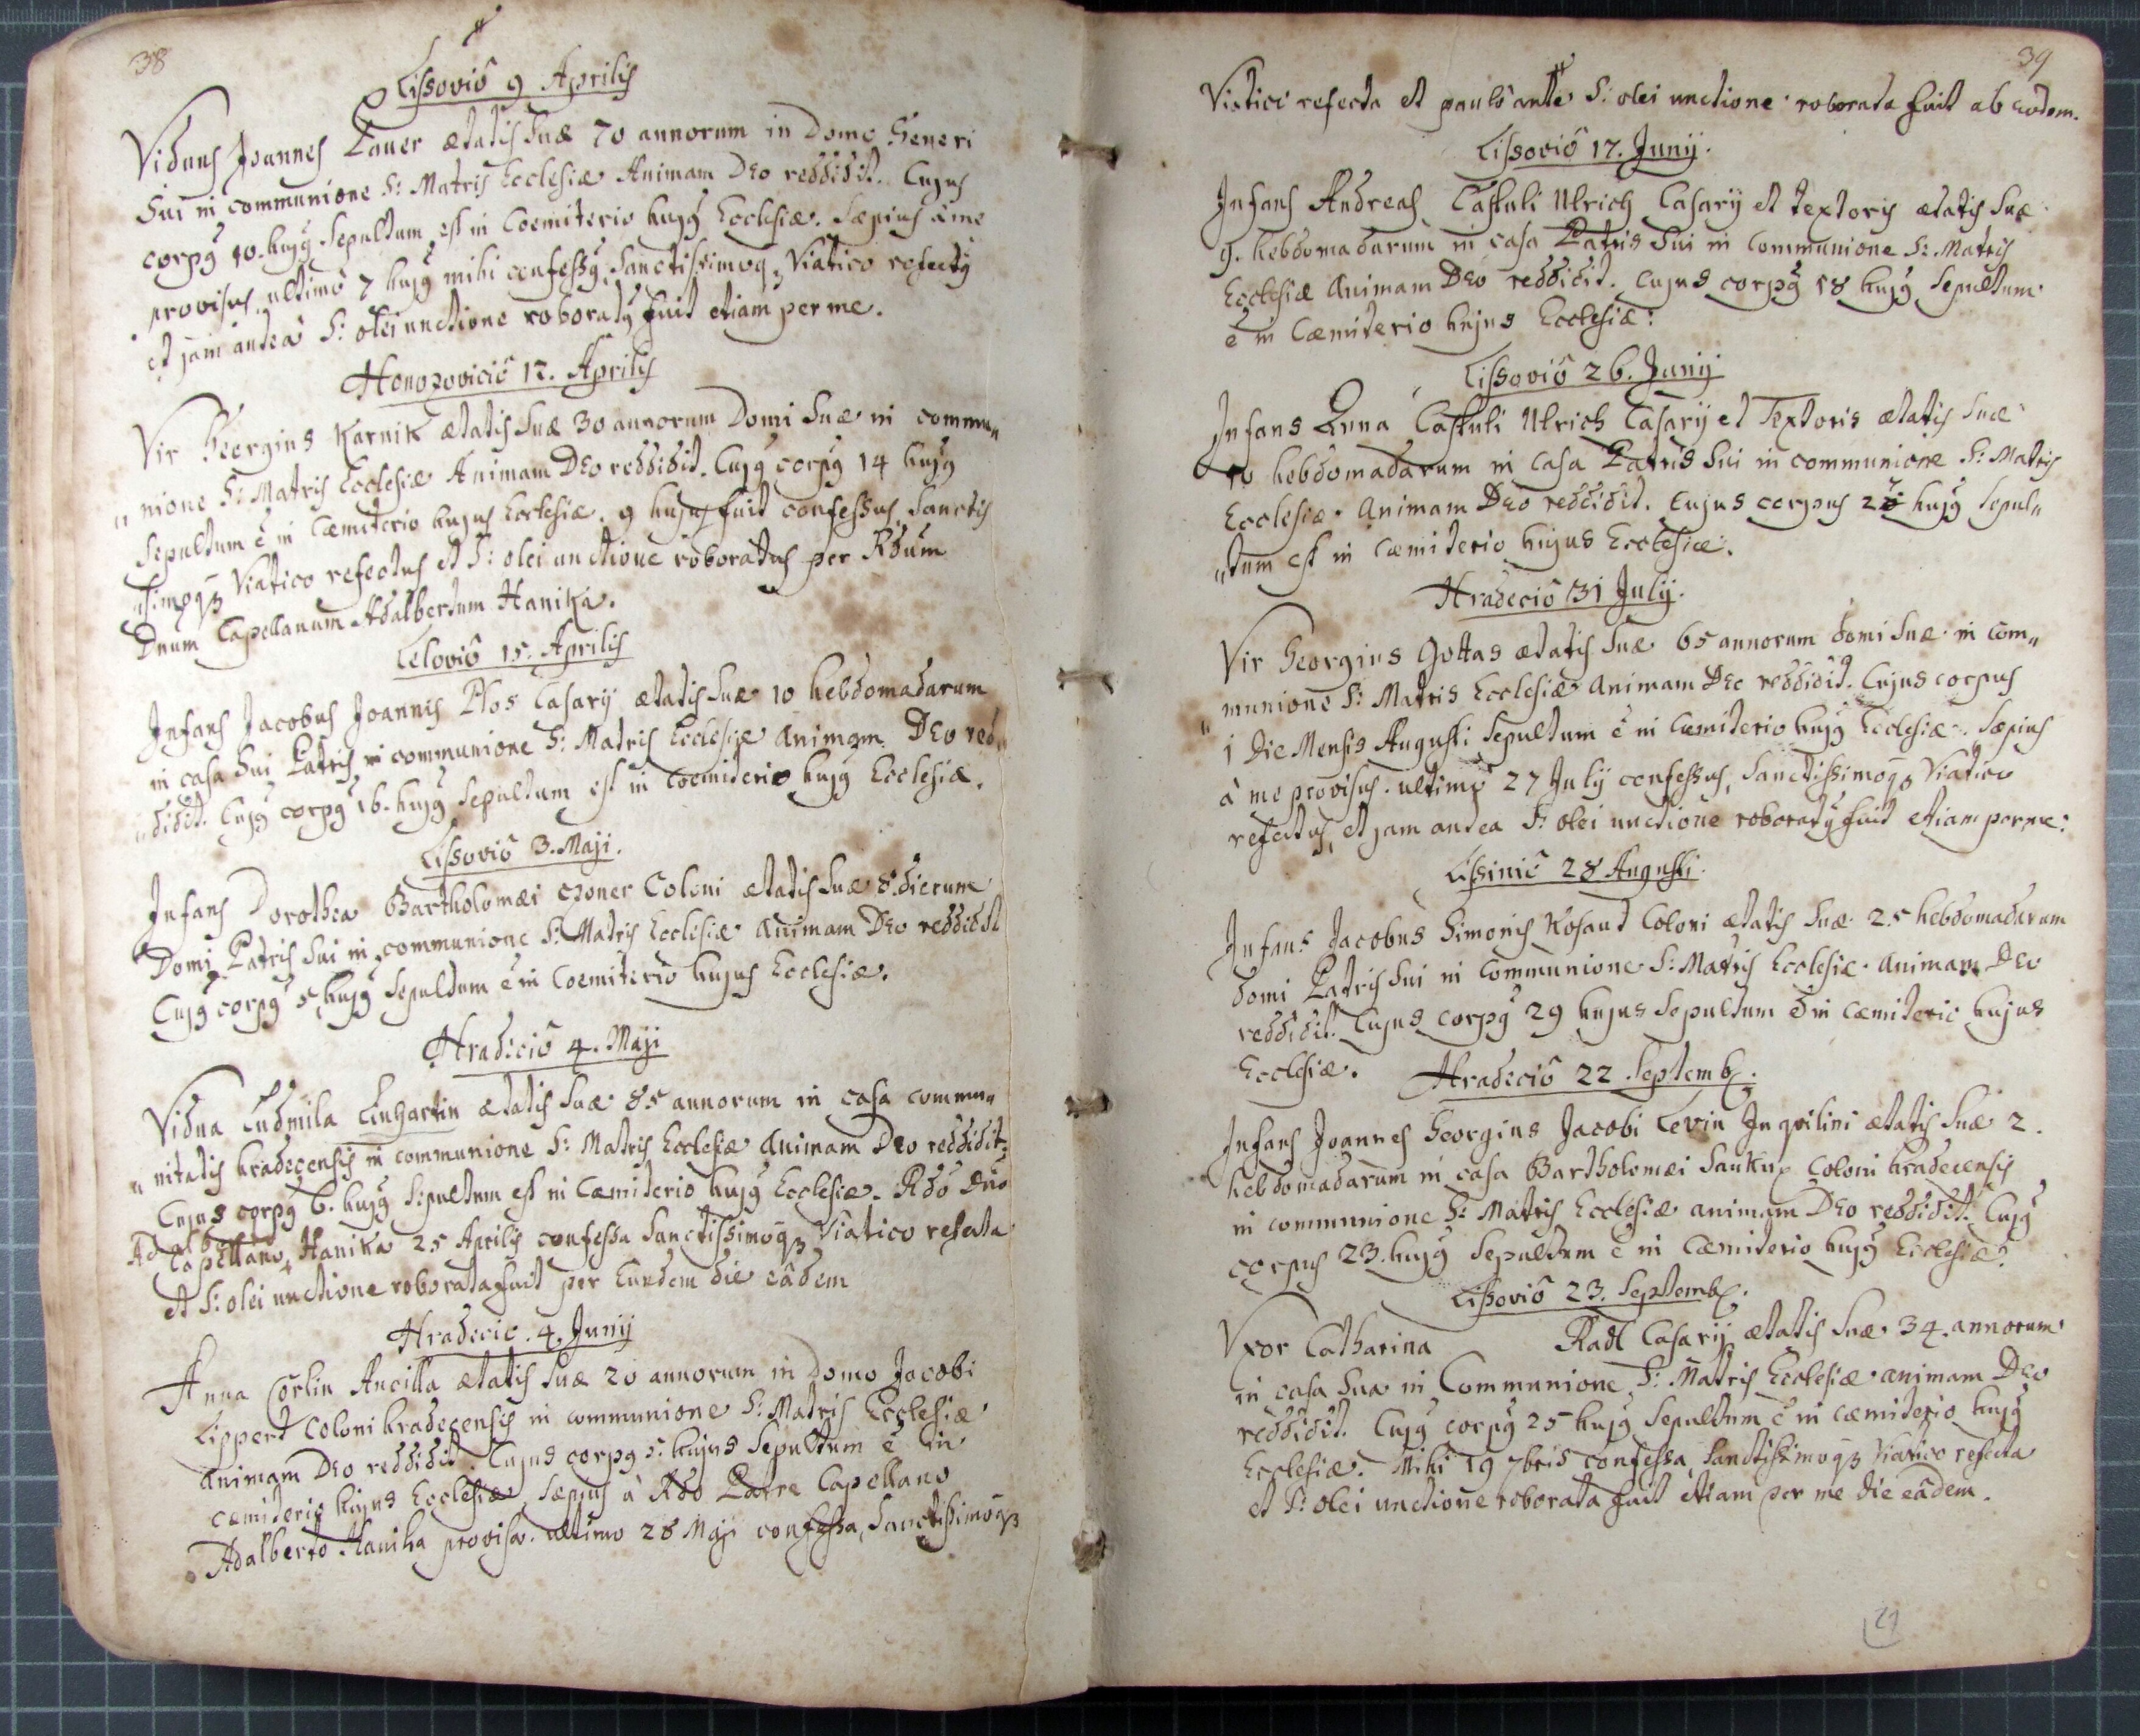 38
Lissoviô 9 Aprilis
Viduus Joannes Lauer ætatis suæ 70 annorum in Domo Generi
sui in communione S: Matris Ecclesiæ Animam DEo reddidit. Cujus
corpg 10. hujg sepultum est in Coemiterio hujg Ecclesiæ. Sæpius à me
provisus, ultimô 7 hujg mihi confessg, Sanctissimoq3 Viatico refectg
et jam anteà S: olei unctione roboratg fuit etiam per me.
Honozoviciô 12. Aprilis
Vir Georgius Karnik ætatis suæ 30 annorum Domi Suæ in commu„
„nione S: Matris Ecclesiæ Animam DEo reddidit. Cujg corpg 14 hujg
sepultum ê in Cæmiterio hujus Ecclesiæ. 9 hujg fuit confessus, Sanctis
„simoq3 Viatico refectus et S: olei unctione roboratus per Rdum
Dnum Capellanum Adalbertum Hanika.
Teloviô 15. Aprilis
Infans Jacobus Joannis Plos Casarij ætatis suæ 10 hebdomadarum
in casa sui Patris in communione S: Matris Ecclesiæ Animam DEo red„
„didit. Cujg corpg 16. hujg sepultum est in Coemiterio hujg Ecclesiæ.
Lissoviô 3. Maji.
Infans Dorothea Bartholomæi Coloni ætatis suæ 8 dierum
Domi Patris sui in communione S: Matris Ecclesiæ Animam DEo reddidit
Cujg corpg 5 hujg sepultum ê in Coemiterio hujus Ecclesiæ.
Hradeciô 4. Maji
Vidua Ludmila Lingartin ætatis suæ 85 annorum in casa commu„
„nitatis hradecensis in communione S: Matris Ecclesiæ Animam DEo reddidit:
Cujus corpg 6. hujg sepultum est in Cæmiterio hujg Ecclesiæ. Rdô Dnô
Capellano Adalb. Hanika 25 Aprilis confessa Sanctissimoq3 Viatico refecta
et S: olei unctione roborata fuit per Eundem die eâdem
Hradecio. 4. Junij
Anna Ancilla ætatis suæ 20 annorum in domo Jacobi
Lippert Coloni hradecensis in communione S: Matris Ecclesiæ
Animam DEo reddidit. Cujus corpg 5. hujus sepultum ê in
Cæmiterio hujus Ecclesiæ, sæpius à Rdo Patre Capellano
Adalberto Hanika provisa. ultimo 28 Maji confessa, Sanctissimoq3
39
Viatico refecta et paulô ante S: olei unctione roborata fuit ab eodem.
Lissoviô 17. Junij.
Infans Andreas Castuli Ulrich Casarij et textoris ætatis suæ
9. hebdomadarum in casa Patris sui in Communione S: Matris
Ecclesiæ Animam DEo reddidit. Cujus corpg 18 hujg sepultum
ê in Cæmiterio hujus Ecclesiæ:
Lissoviô 26. Junij
Infans Anna Castuli Ulrich Casarij et Textoris ætatis suæ
10 hebdomadarum in Casa Patris sui in communione S: Matris
Ecclesiæ Animam DEo reddidit. Cujus corpus 27 hujg sepul„
„tum est in Cæmiterio hujus Ecclesiæ.
Hradeciô 31 Julij.
Vir Georgius Gottas ætatis suæ 65 annorum domi suæ in com„
„munione S: Matris Ecclesiæ Animam DEo reddidit. Cujus corpus
1 die Mensis Augusti sepultum ê in Cæmiterio hujg Ecclesiæ. Sæpius
à me provisus. ultimo 27 Julij confessus, Sanctissimoq3 Viatico
refectus, et jam antea S: olei unctione roboratg fuit etiam per me:
Lissiniô 28 Augusti.
Infans Jacobus Simonis Kosaut Coloni ætatis suæ 25 hebdomadarum
domi Patris sui in Communione S: Matris Ecclesiæ Animam DEo
reddidit. Cujus corpg 29 hujus sepultum ê in Cæmiterio hujus
Ecclesiæ.
Hradeciô 22 Septemb.
Infans Joannes Georgius Jacobi Levin Inquilini ætatis suæ 2.
hebdomadarum in casa Bartholomæi Saukup Coloni hradecensis
in communione S: Matris Ecclesiæ animam DEo reddidit. Cujg
corpus 23. hujg sepultum ê in Cæmiterio hujg Ecclesiæ.
Lissoviô 23. Septemb.
Uxor Catharina Radl Casarij ætatis suæ 34. annorum
in casa sua in Communione S: Matris Ecclesiæ animam DEo
reddidit. Cujg corpg 25 hujg sepultum ê in Cæmiterio hujg
Ecclesiæ. Mihi 19 7bris confessa, Sanctissimoq3 Viatico refecta
et S: olei unctione roborata fuit etiam per me die eâdem.
21